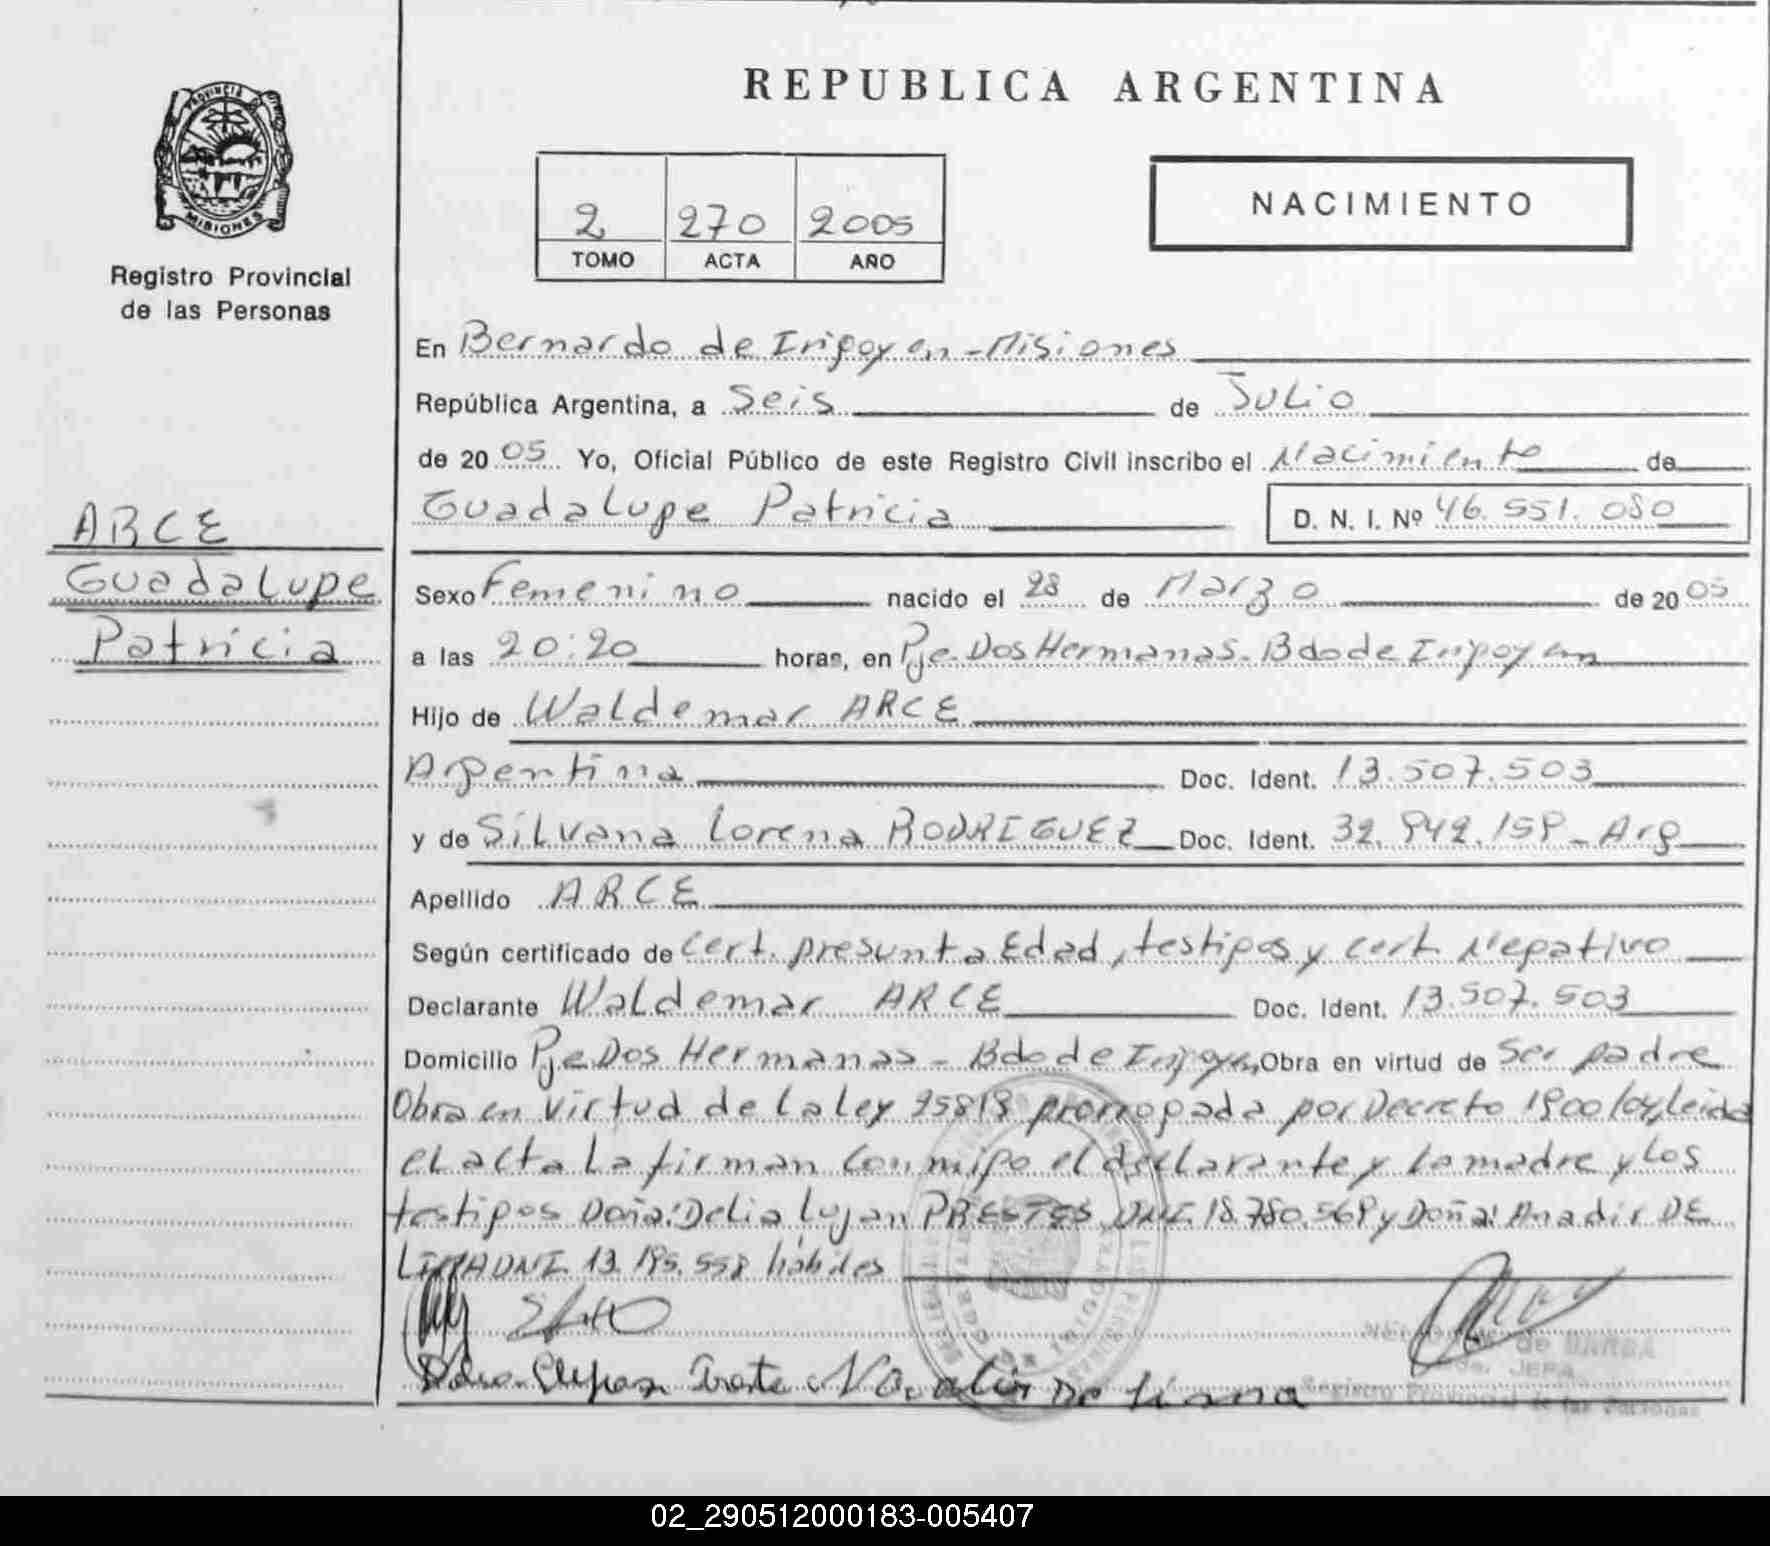 REPUBLICA ARGENTINA
PROVINCIA DE
MISIONES
Registro Provincial
de las Personas
2 270 2005
TOMO ACTA AÑO
NACIMIENTO
En Bernardo de Irigoyen - Misiones
República Argentina, a Seis de Julio
de 20 05 Yo, Oficial Público de este Registro Civil inscribo el Nacimiento de
Guadalupe Patricia D. N. I. Nº 46.551.080
ARCE
Guadalupe
Patricia
Sexo Femenino nacido el 28 de Marzo de 20 05
a las 20:20 horas, en Pje. Dos Hermanas. Bdo de Irigoyen
Hijo de Waldemar ARCE
Argentina Doc. Ident. 13.507.503
y de Silvana Lorena RODRIGUEZ Doc. Ident. 32.942.159 - Arg
Apellido ARCE
Según certificado de Cert. presunta Edad, testigos y cert Negativo
Declarante Waldemar ARCE Doc. Ident. 13.507.503
Domicilio Pje Dos Hermanas - Bdo de Irigoyen Obra en virtud de Ser padre
Obra en virtud de la Ley 25818 prorrogada por Decreto 1900/04, leida
el acta la firman conmigo el declarante y la madre y los
testigos Doña: Delia Lujan PRESTES DNI. 18.780.569 y Doña: Anadir DE
LIMA DNI. 13.195.558 hábiles
de BARBA
JEFA
Registro Provincial de las Personas
02_290512000183-005407